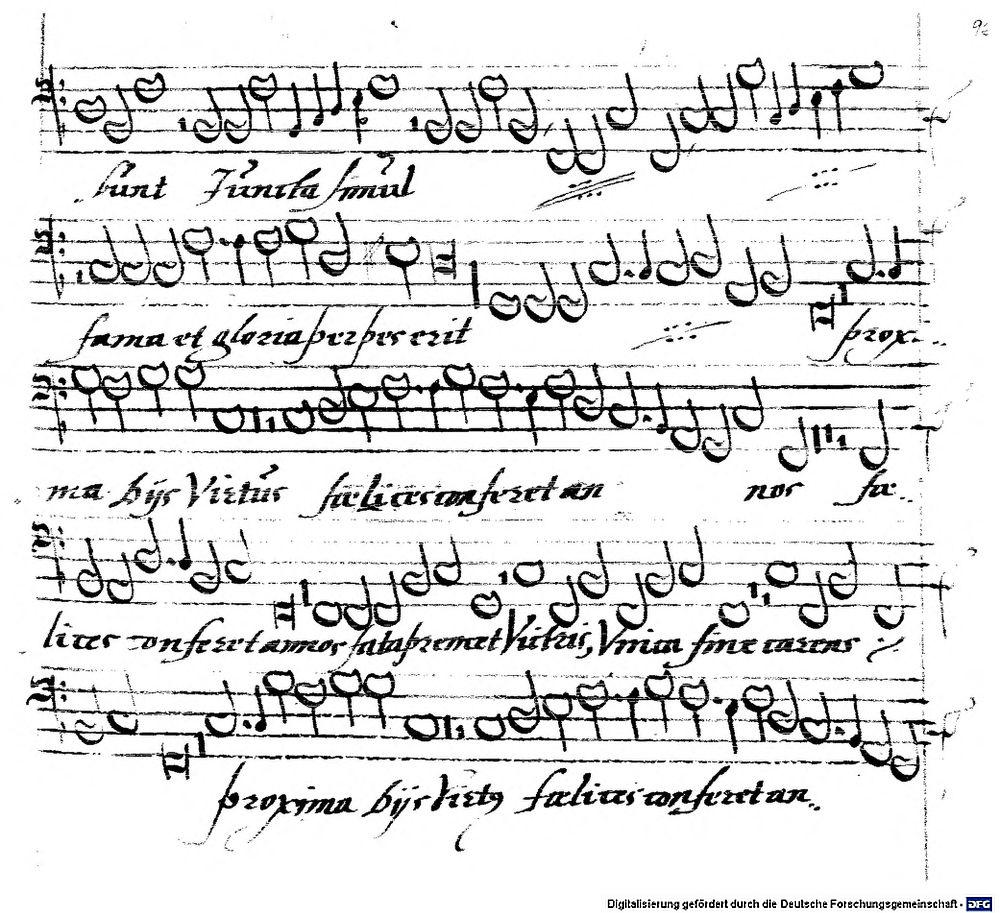 sunt Juncta simul
fama et gloria perpes erit prox..
ma hijs Virtus fœlices conferet an nos fœ..
lices conferet annos fata premet Vnica fine carens
proxima hijs Virt9 fœlices conferet an..
Digitalisierung gefördert durch die Deutsche Forschungsgemeinschaft - DFG